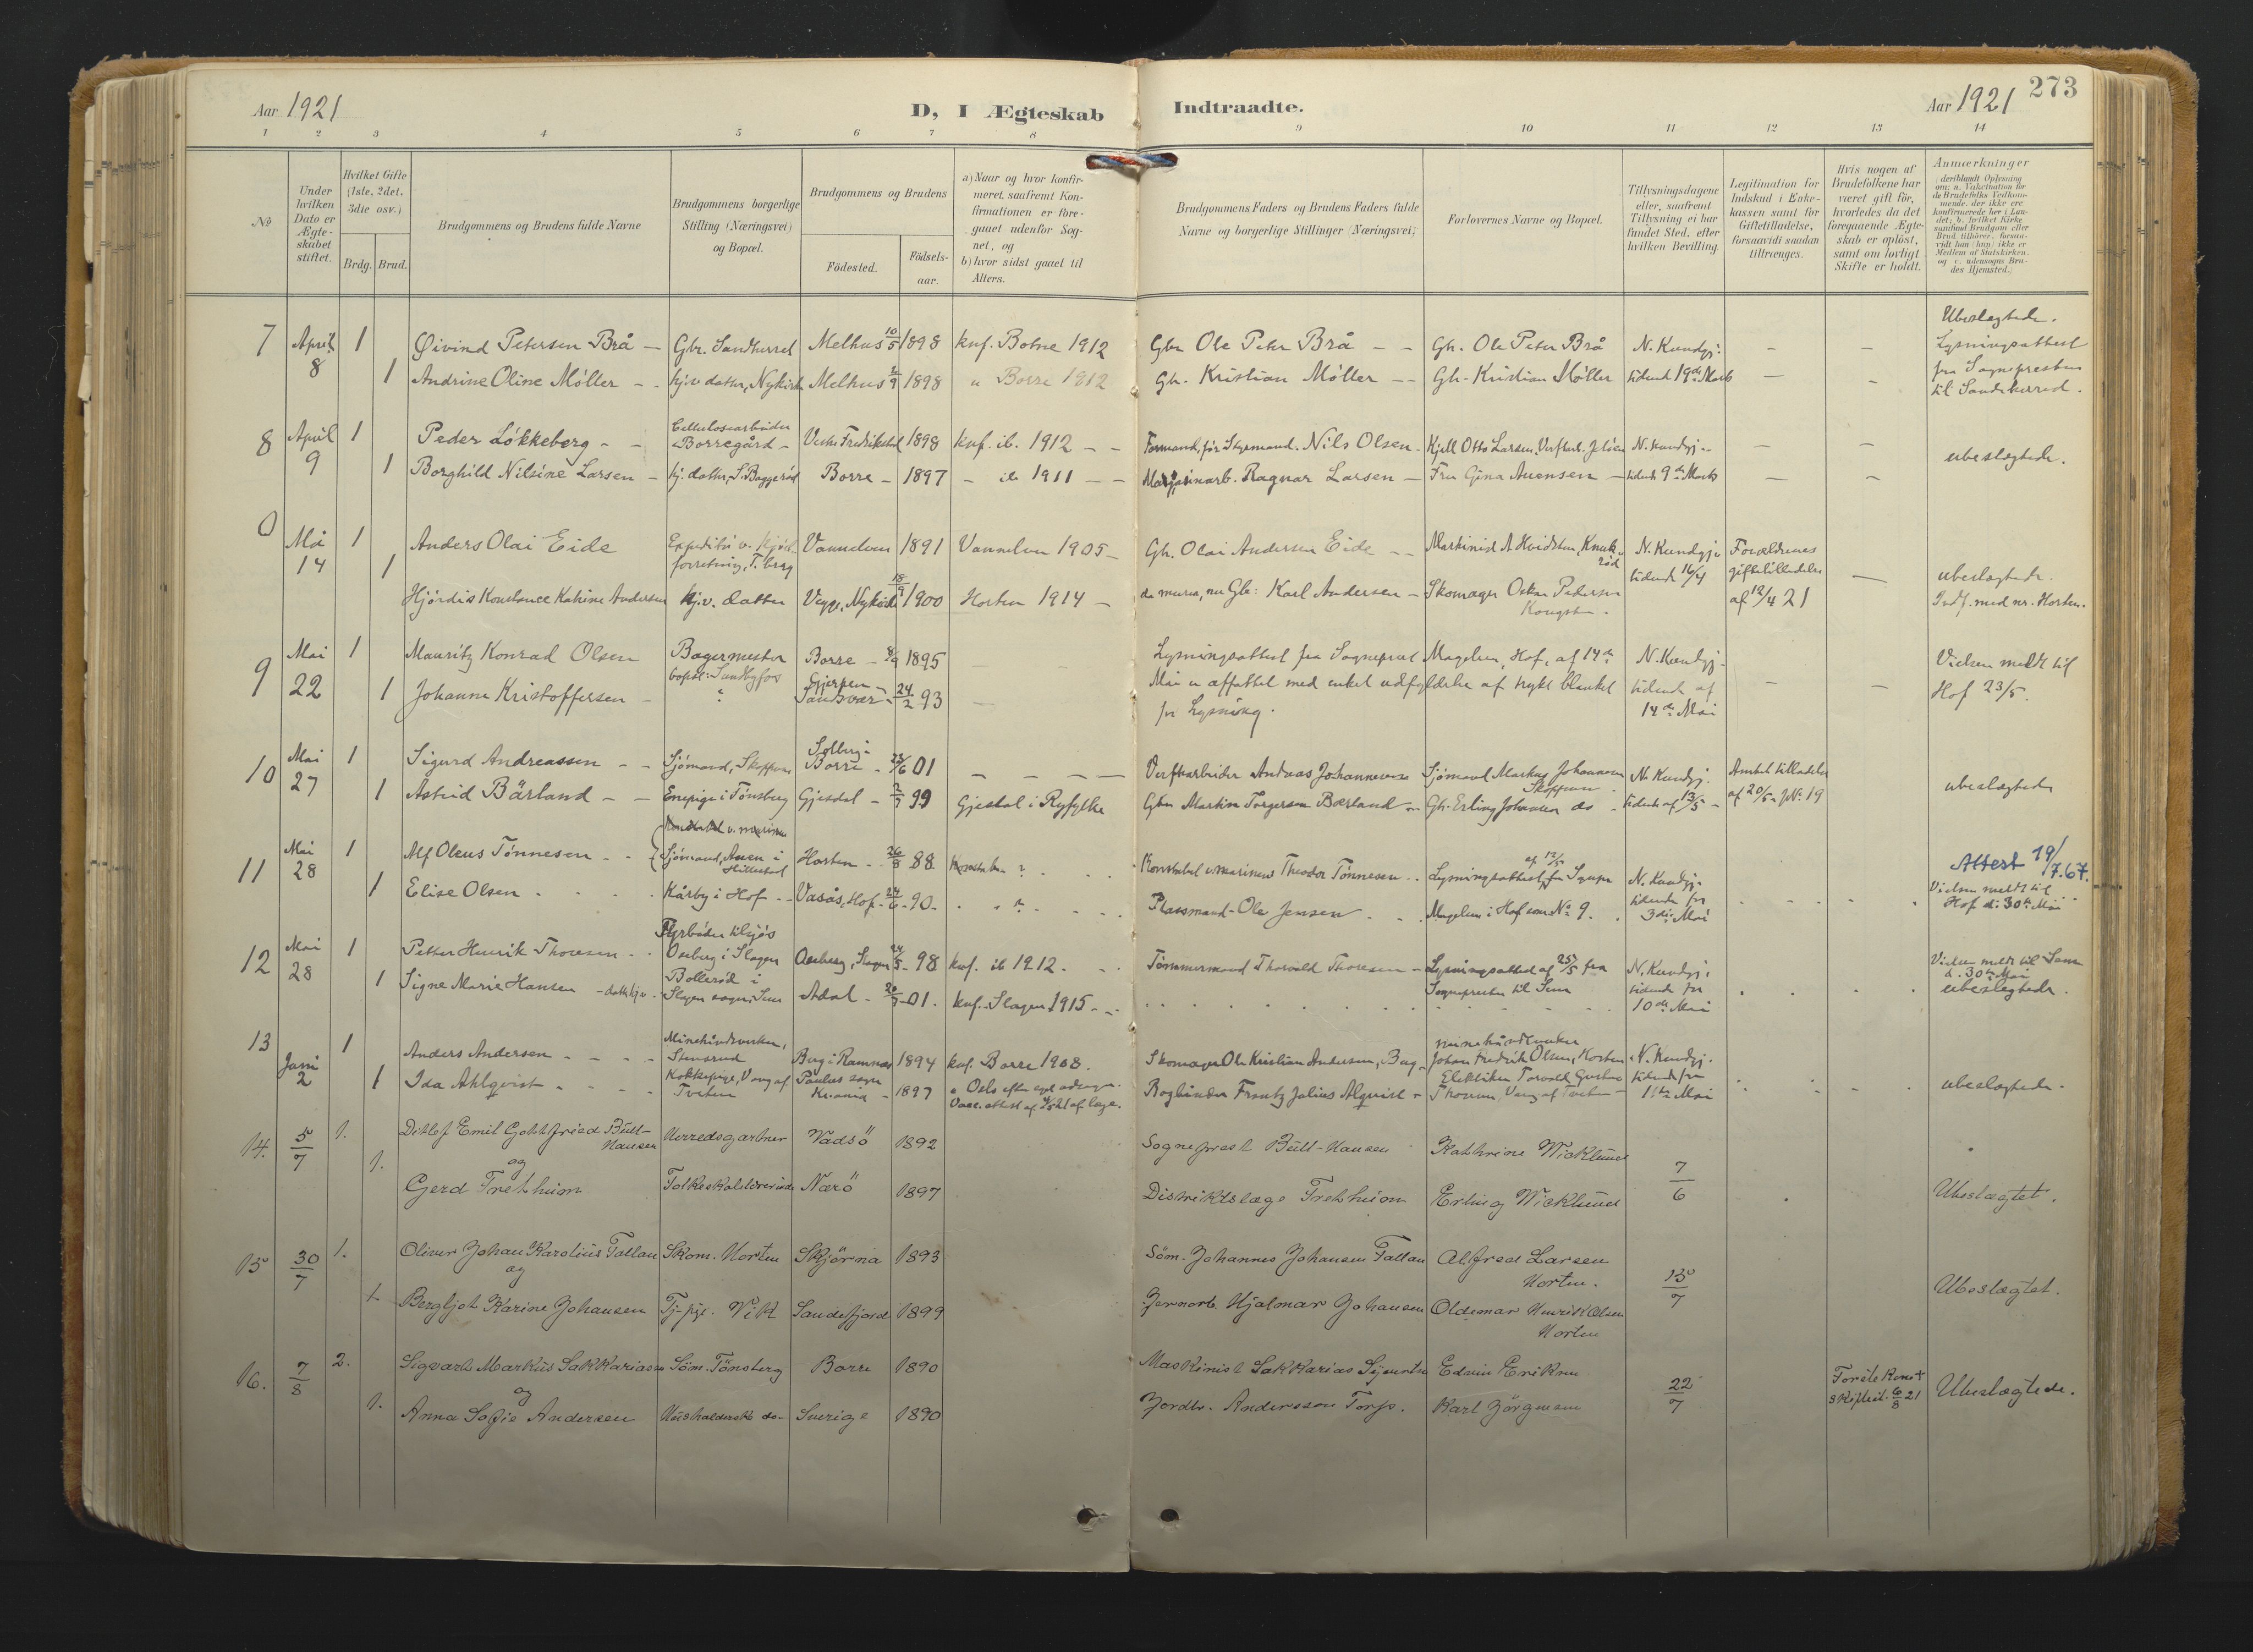 Aar 1921
D, I Ægteskab Indtraadte.
Aar 1921 273
1 2 3 4 5 6 7 8 9 10 11 12 13 14
№
Under hvilken Dato er Ægteskabet stiftet.
Hvilket Gifte (1ste, 2det, 3die osv.)
Brdg. Brud.
Brudgommens og Brudens fulde Navne
Brudgommens borgerlige Stilling (Næringsvei) og Bopæl.
Brudgommens og Brudens
Födested.
Födselsaar.
a) Naar og hvor konfirmeret, saafremt Konfirmationen er foregaaet udenfor Sognet, og
b) hvor sidst gaaet til Alters.
Brudgommens Faders og Brudens Faders fulde Navne og borgerlige Stillinger (Næringsvei)
Forlovernes Navne og Bopæl.
Tillysningsdagene eller, saafremt Tillysning ei har fundet Sted, efter hvilken Bevilling.
Legitimation for Indskud i Enkekassen samt for Giftetilladelse, forsaavidt saadan tiltrænges.
Hvis nogen af Brudefolkene har været gift för, hvorledes da det foregaaende Ægteskab er oplöst, samt om lovligt Skifte er holdt.
Anmærkninger
7 April 8 1 Øivind Petersen Brå – Gbr. Sandherred Melhus 10/5 1898 knf. Botne 1912 Gbr. Ole Peter Brå – – Gb. Ole Peter Brå N. Kundgj. – – Ubeslægtede.
1 Andrine Oline Møller – – hjv. datter, Nykirke Melhus 1898 " Borre 1912 Gb. Kristian Møller – – Gb. Kristian Møller tidende 19de Marts – – Lysningsattest fra Sognepresten til Sandeherred.
8 April 9 1 Peder Løkkeberg – – Cellulosearbeider Borregård – Vestre Fredrikstad 1898 knf. ib. 1912 – – Formand, før Styrmand. Nils Olsen – Kjell Otto Larsen, Verftarb. Jeløen N. Kundgj. – – ubeslægtede.
1 Borghild Nilsine Larsen – hj. datter, S. Baggerød Borre – 1897 – ib 1911 – – Margarinarb. Ragnar Larsen – Fru Gina Auensen – tidende 9de Marts – –
0 Mai 14 1 Anders Olai Eide Expeditør v. kjøl. forretning, T.berg Vannelven 1891 Vannelven 1905 – Gb. Olai Andersen Eide – – Martinius A Hvidsten, Knuk.rød N. Kundgj. tidende 16/4 Forældrenes giftetilladelse af 12/4 21 – ubeslægtede.
1 Hjørdis Konstance Katrine Andersen hj.v. datter Vegge, Nykirke 18/9 1900 Horten 1914 – da murer, nu Gb: Karl Andersen – Skomager Oskar Pedersen Kongsten. Indf. med nr. Horten.
9 Mai 22 1 Mauritz Konrad Olsen Bagermester bopæl: Sundbyfos Borre – 8/9 1895 – Lysningsattest fra Sogneprest Magelsen, Hof, af 14de N. Kundgj. Vielsen meldt til Hof 23/5.
1 Johanne Kristoffersen – " Gjerpen – Sandsvær – 24/2 93 – Mai er affattet med enkel udfyldelse af trykt blanket for Lysning. tidende af 14de Mai – –
10 Mai 27 1 Sigurd Andreassen – – Sjømand, Skoppum Solberg i Borre – 01 – – – – Verftsarbeider Andreas Johannessen Sjømand Markus Johannesen Skoppum N. Kundgj. Ambts tilladelse ubeslægtede
1 Astrid Bärland – – Enepige i Tønsberg Gjesdal – 2/7 99 Gjesdal i Ryfylke Gbr. Martin Torgersen Bærland – Gb. Erling Johansen do – tidende af 13/5 – af 20/5 – № 19
11 Mai 28 1 Alf Oleus Tønnesen – – Sjømand, Auen i Hillestad Horten – 26/8 88 ? Konstabel v. marinen Theodor Tønnesen – – Lysningsattest af 12/5 fra Sognepr. N. Kundgj. Attest 19/7.67.
1 Elise Olsen – – Kårby i Hof – – Vasås, Hof – 24/6 – 90 – " ? – – Plassmand – Ole Jensen – – Magelsen i Hof som № 9. tidende fra 3die Mai Vielsen meldt til Hof d. 30te Mai
12 Mai 28 1 Petter Henrik Thoresen – – Fyrbøder tilsjøs Oseberg i Slagen Oseberg, Slagen – 98 knf. ib 1912. Tømmermand Thorvald Thoresen – Lysningsattest af 25/5 fra N. Kundgj. Vielsen meldt til Sem d. 30te Mai
1 Signe Marie Hansen – datter hj.v. Bollerød i Slagen sogn, Sem Ådal – 20/7 – 01. knf. Slagen 1915 – – Sognepresten til Sem tidende fra 10de Mai ubeslægtede.
13 Juni 2 1 Anders Andersen – – – Minehåndverker, Stensrud Berg i Ramnes 1894 knf. Borre 1908. Skomager Ole Kristian Andersen, Berg – minehåndverker Johan Fredrik Olsen, Horten N. Kundgj.
1 Ida Ahlqvist – – – Kokkepige, Vang af Tveten Paulus sogn Kr.ania – 1897 " Oslo efter egen udsagn. Vacc. attest af læge. Bogbinder Frantz Julius Alqvist – Elektriker Torvald Gustav Thoresen, Vang af Tveten – tidende fra 11te Mai ubeslægtede.
14. 5/7 1. Detlef Emil Gottfried Bull-Hansen Herredsgartner Vadsö 1892 Sogneprest Bull-Hansen Kathrine Wicklund
og
1. Gerd Fretheim Folkeskolelærerinde Nærö 1897 Distriktslæge Fretheim Erling Wicklund 7/6 Ubeslægtet.
15 30/7 1. Oliver Johan Karolius Tallan Skom. Horten Skjörna 1893 Söm. Johannes Johansen Tallan Alfred Larsen Horten. 15/7 Ubeslægtet.
og
1. Bergljot Karine Johansen Tj-pige. Vik Sandefjord 1899 Jernarb. Hjalmar Johansen Oldemar Henrik Olsen Horten
16. 7/8 2. Sigvart Markus Sakkariassen Söm. Tönsberg Borre 1890 Maskinist Sakkarias Syvertsen Edvin Eriksen 22/7 Forrets Kone † Skifteat. 6/8 21 Ubeslægtede.
og
1. Anna Sofie Andersen Husholderske do – Sverige 1890 Jordbr. Andersson Torp. Karl Jörgensen